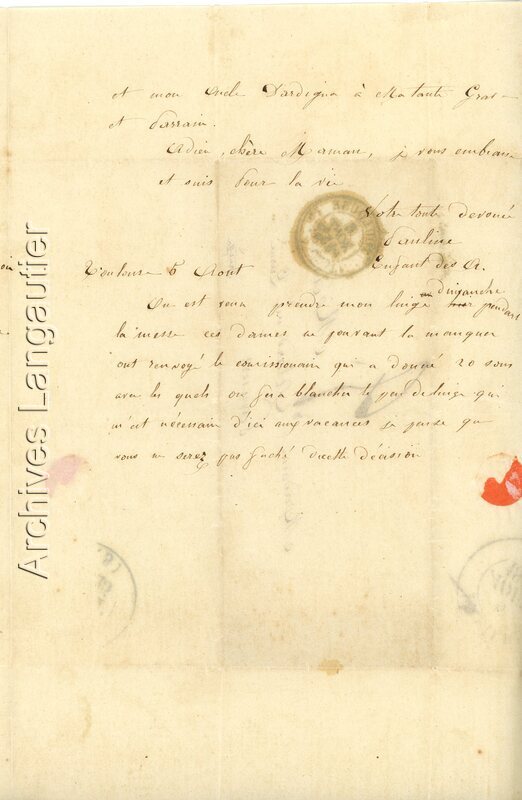 et mon Oncle Dardigna à Ma tante Gras
et Parrain.
Adieu, chère Maman, je vous embrasse
et suis pour la vie
Votre toute devouée
Pauline
Enfant des A.
Toulouse 6 Aout
On est venu prendre mon linge dimanche pendant
la messe ces dames ne pouvant la manquer
ont renvoyé le comissionair qui a donné 20 sous
avec les quels on fera blanchir le peu de linge qui
m'est nécessair d'ici aux vacances je pense que
vous ne serez pas faché de cette décision
Archives Langautier